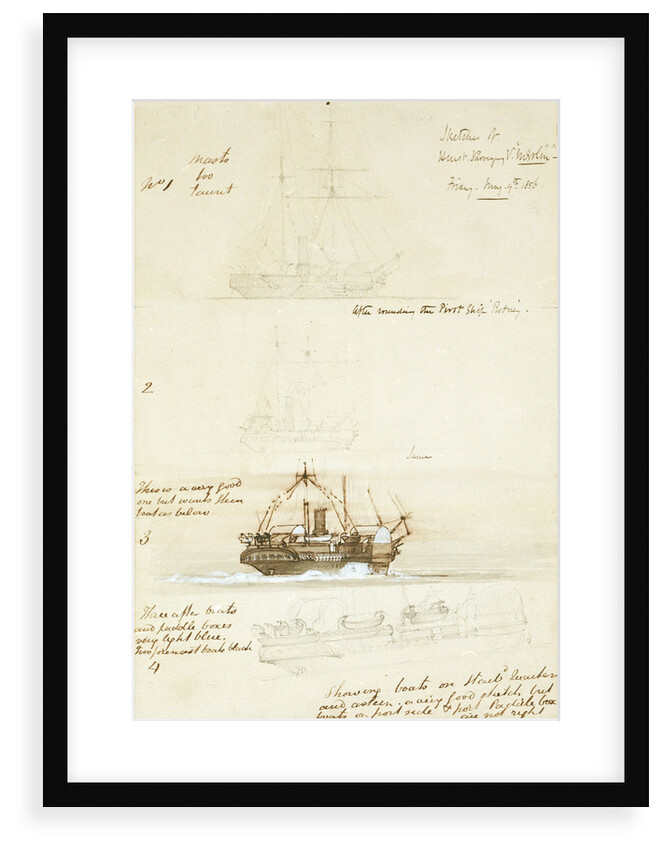 Sketches of
V. "Merlin"-
Friday - May 9th 1856.
No 1
masts
too
taunt
After rounding the Pivot Ship 'Rodney'.
2
Same
This is a very good
one but wants Steen
boat as below.
3
Three after boats
and paddle boxes
very light blue.
Two foremost boats black
4
Showing boats on Starbd Quarter
and astern. a very good sketch but
boats on port side & port Paddle box
are not right